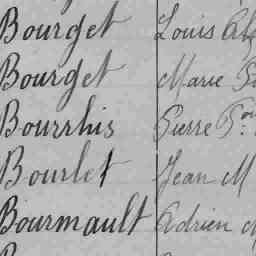 Bourget Louis
Bourget Marie
Bourrhis Pierre
Bourlet Jean M
Bourmault Adrien